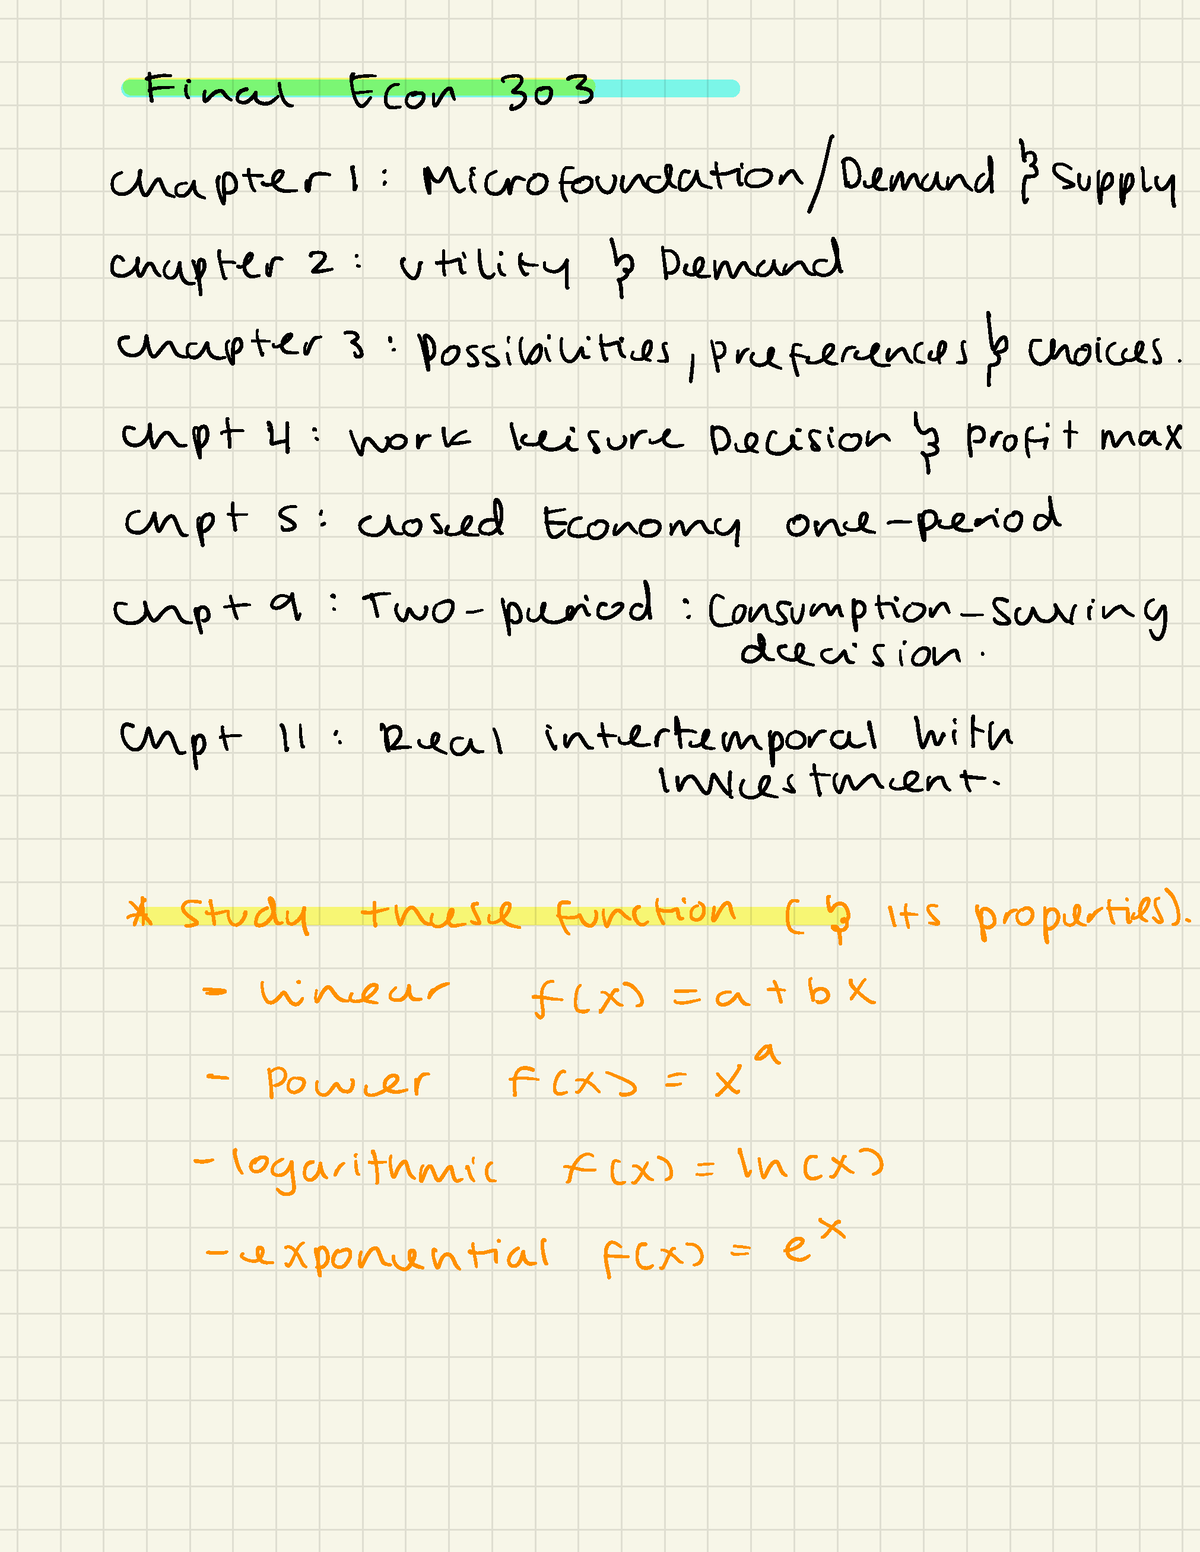 Final Econ 303
chapter 1: Microfoundation/Demand & Supply
chapter 2: utility & Demand
chapter 3: Possibilities, preferences & choices.
chpt 4: work leisure Decision & profit max
chpt 5: closed Economy one-period
chpt 9: Two-period: Consumption-saving
decision.
chpt 11: Real intertemporal with
investment.
* Study these function (& its properties).
- linear f(x) = a + bx
- Power f(x) = x^a
- logarithmic f(x) = ln(x)
- exponential f(x) = e^x